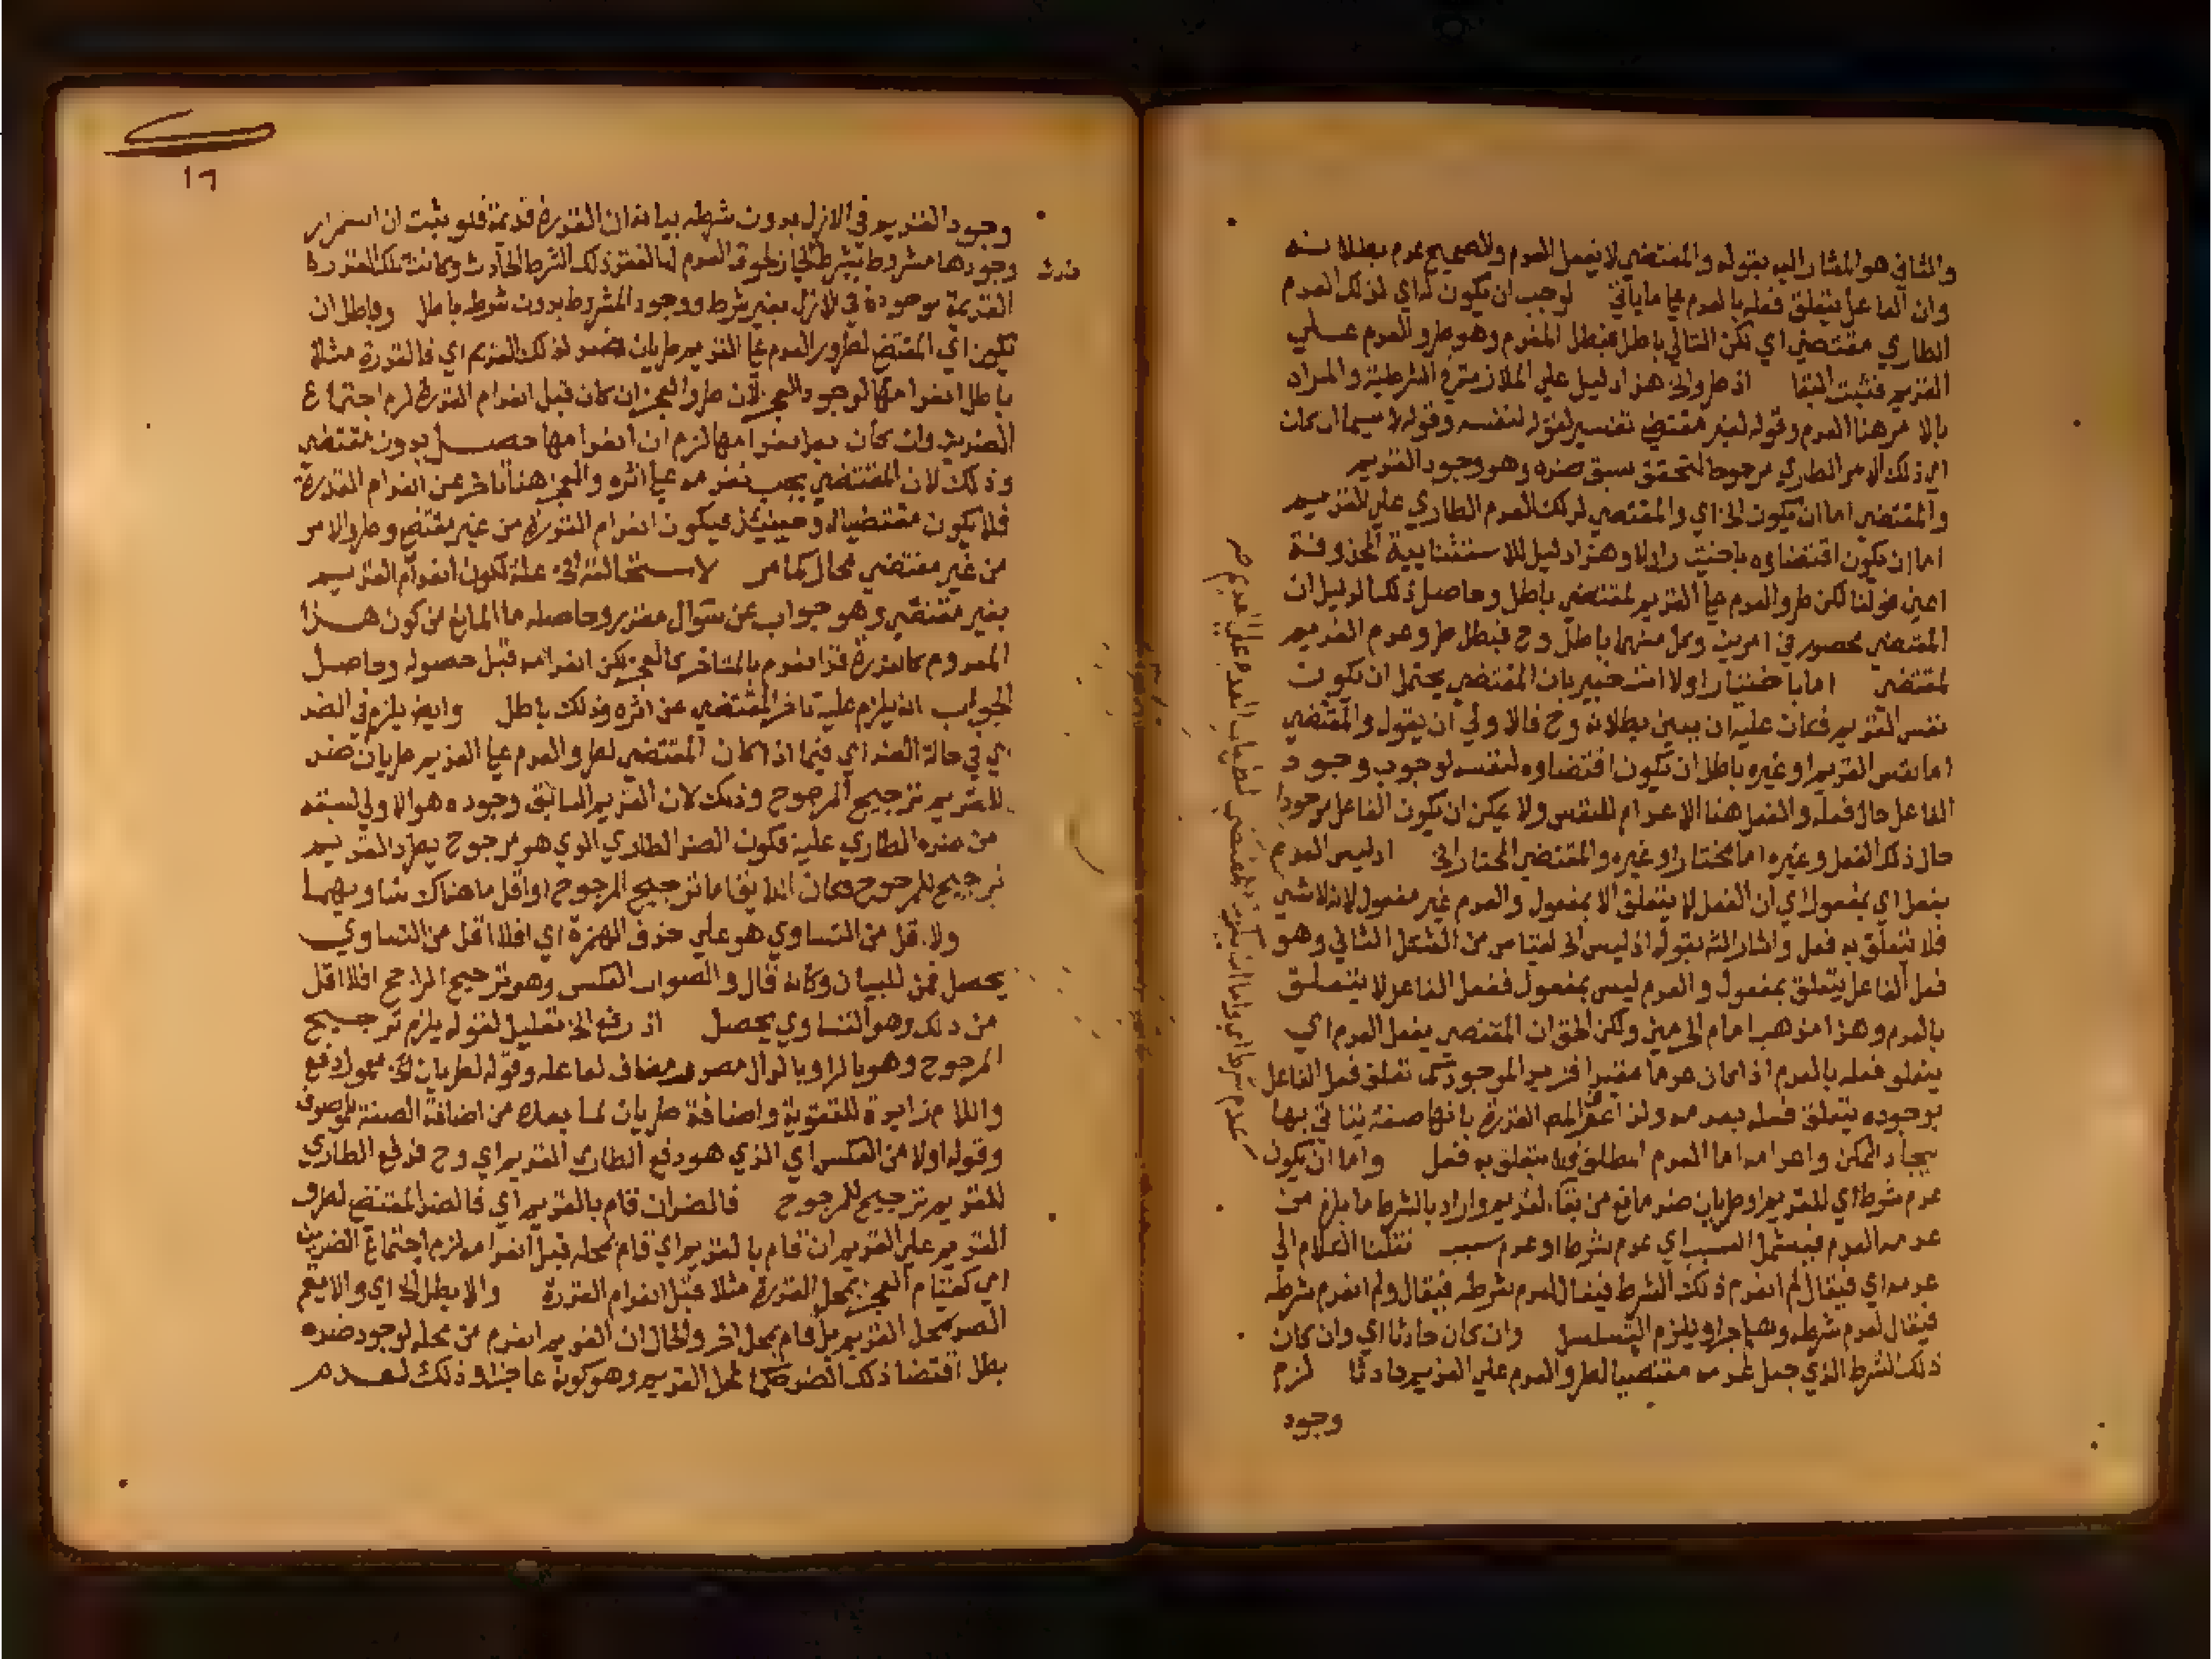 والثاني هو المشار اليه بقوله والمقتضي لا يفعل العدم والصحيح عدم بطلانه
وان الفاعل يتعلق فعله بالعدم علي ما ياتي لوجب ان يكون له اي لذلك العدم
الطاري مقتضي اي لكن التالي باطل فبطل المقدم وهو طرو العدم علي
القديم فثبت البقا اذ طرو الخ هذا دليل علي الملازمة في الشرطية والمراد
بالامر هنا العدم وقوله لغير مقتضي تفسير لقوله لنفسه وقوله لا سيما ان كان
اي ذلك الامر الطاري مرجوحا لتحقق سبق ضده وهو وجود القديم
والمقتضي اما ان يكون الخ اي والمقتضي لذلك العدم الطاري علي القديم
اما ان يكون اقتضاوه باختيار او لا وهذا دليل للاستثنايية المحذوفة
اعني قولنا لكن طرو العدم علي القديم لمقتضي باطل وحاصل ذلك الدليل ان
المقتضي محصور في امرين وكل منهما باطل وح فبطل طرو عدم القديم
لمقتضي اما باختيار او لا انت خبير بان المقتضي يحتمل ان يكون
نفس القديم فكان عليه ان يبين بطلانه وح فالاولي ان يقول والمقتضي
اما نفس القديم او غيره باطل ان يكون اقتضاوه لنفسه لوجوب وجود
الفاعل حال فعله والفعل هنا الاعدام للنفس ولا يمكن ان يكون الفاعل موجودا
حال ذلك الفعل وغيره اما مختار او غيره والمقتضي المختار الخ اذ ليس العدم
بفعل اي بمفعول اي ان الفعل لا يتعلق الا بمفعول والعدم غير مفعول لانه لا شي
فلا يتعلق به فعل واشار اليه بقوله اذ ليس الخ لقياس من الشكل الثاني وهو
فعل الفاعل يتعلق بمفعول والعدم ليس بمفعول ففعل الفاعل لا يتعلق
بالعدم وهذا مذهب امام الحرمين ولكن الحق ان المقتضي يفعل العدم اي
يتعلق فعله بالعدم اذا كان عدما مقيدا فزيد الموجود كما تعلق فعل الفاعل
بوجوده يتعلق فعله بعدمه ولذا القدرة بانها صفة يتاتي بها
ايجاد الممكن واعدامه اما العدم المطلق فلا يتعلق به فعل واما ان يكون
عدم شرط اي للقديم او طريان ضد مانع من بقاء القديم واراد بالشرط ما يلزم من
عدمه العدم فيشمل السبب اي عدم شرط او عدم سبب نقلنا الكلام الي
عدمه اي فيقال لم انعدم ذلك الشرط فيقال لعدم شرطه فيقال ولم انعدم شرطه
فيقال لعدم شرطه وهلم جرا ويلزم التسلسل وان كان حادثا اي وان كان
ذلك الشرط الذي جعل عدمه مقتضيا لطرو العدم علي القديم حادثا لزم
وجود
١٦
وجود القديم في الازل بدون شرطه بيانه ان القدرة قديمة فلو ثبت ان استمرار
وجودها مشروط بشرط لجاز لحوق العدم لها لفقد ذلك الشرط الحادث وكانت تلك القدرة
القديمة موجودة في الازل بغير شرط ووجود المشروط بدون شرط باطل وباطل ان
يكون اي المقتضي لطرو العدم علي القديم طريان ضد لذلك القديم اي فالقدرة مثلا
باطل انعدامها لوجود العجز لان طرو العجز ان كان قبل انعدام القدرة لزم اجتماع
الضدين وان كان بعد انعدامها لزم ان انعدامها حصل بدون مقتضي
وذلك لان المقتضي يجب تقدمه علي اثره والعجز هنا تاخر عن انعدام القدرة
فلا يكون مقتضيا له وحينيذ فيكون انعدام القدرة من غير مقتضي وطرو الامر
من غير مقتضي محال كما مر لاستحالته الخ علة لكون انعدام القديم
بغير مقتضي وهو جواب عن سوال مقدر وحاصله ما المانع من كون هذا
المعدوم كالقدرة قد انعدم بالمتاخر كالعجز لكن انعدامه قبل حصوله وحاصل
الجواب انه يلزم عليه تاخر المقتضي عن اثره وذلك باطل وايضا يلزم في الضد
اي في حالة الضد اي فيما اذا كان المقتضي لطرو العدم علي القديم طريان ضد
للقديم ترجيح المرجوح وذلك لان القديم السابق وجوده هو الاولي لسبقه
من ضده الطاري عليه فكون الضد الطاري الذي هو مرجوح يطرد القديم
ترجيح للمرجوح
ولا اقل من التساوي هو علي حذف الهمزة اي افلا اقل من التساوي
يحصل فمن للبيان وكانه قال والصواب العكس وهو ترجيح الراجح افلا اقل
من ذلك وهو التساوي يحصل اذ رفع الخ تعليل لقوله يلزم ترجيح
المرجوح وهو بالرا وبالدال مصدر مضاف لفاعله وقوله لطريان الخ معمول دفع
واللام زايدة للتقوية واضافة طريان لما بعده من اضافة الصفة للموصوف
وقوله اولا من العكس اي الذي هو دفع الطاري القديم اي وح فدفع الطاري
للقديم ترجيح للمرجوح فالضد ان قام بالقديم اي فالضد المقتضي لطرو
القديم علي القديم ان قام بالقديم اي قام بمحله قبل انعدامه لزم اجتماع الضدين
اي كقيام العجز بمحل القدرة مثلا قبل انعدام القدرة والا بطل الخ اي والا يقم
الضد بمحل القديم بل قام بمحل اخر والحال ان القديم انعدم من محله لوجود ضده
بطل اقتضا ذلك الضد لمحل القديم وهو كونه عاجزا وذلك لعدم